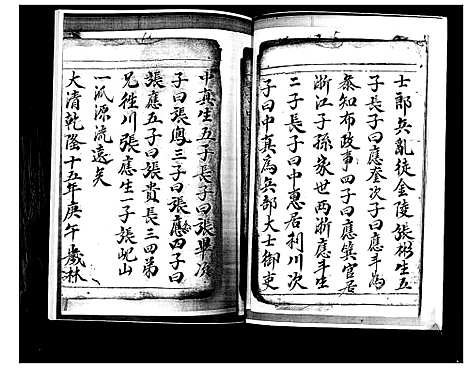 士郎兵亂徒金陵張彬生五
子長子曰應奎次子曰應斗為
泰知布政事四子曰應箕官居
浙江子孫家世两浙應斗生
二子長子曰中惠居利川次
子曰中真為兵部大士御吏
中真生五子長子曰張畢次
子曰張鳳三子曰張應四子曰
張應五子曰張貴長三四弟
兄徃川張應生一子張屹山
一派源流遠矣
大清乾隆十五年庚午歲林